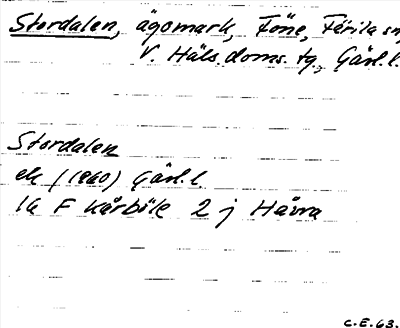 Stordalen, ägomark, Föne, Färila sn,
V. Häls. doms. tg., Gävl. l.
Stordalen
ek (1960) Gävl. l.
16 F Kårböle 2 j Håvra
C.E.63.